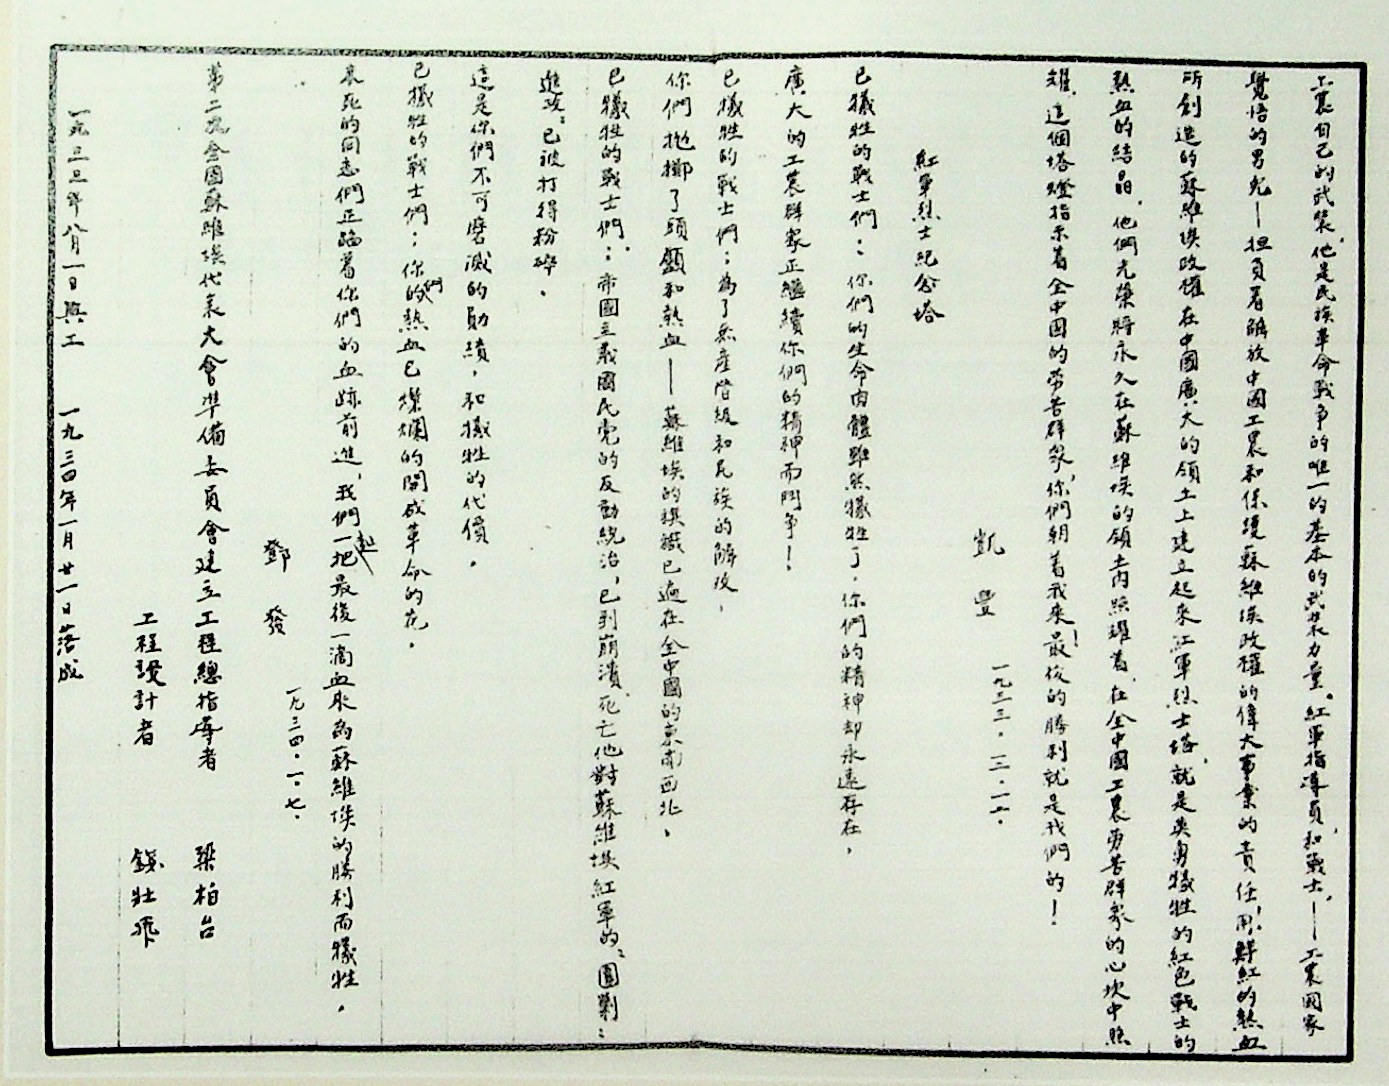 工農自己的武裝，他是民族革命戰爭的唯一的基本的武裝力量。紅軍指導員，和戰士，—工農國家
覺悟的男兒—担負着解放中國工農和保護蘇維埃政權的偉大事業的責任！用鮮紅的熱血
所創造的蘇維埃政權在中國廣大的領土上建立起來紅軍烈士塔，就是英勇犧牲的紅色戰士的
熱血的結晶，他們光榮將永久在蘇維埃的領土內照耀着，在全中國工農勞苦群眾的心坎中照
耀，這個塔燈指示着全中國的勞苦群眾，你們朝着我來！最後的勝利就是我們的！
凱豐 一九三三．一二．二二．
紅軍烈士紀念塔
已犧牲的戰士們：你們的生命肉體雖然犧牲了，你們的精神却永遠存在，
廣大的工農群眾正繼續你們的精神而鬥爭！
已犧牲的戰士們：為了無產階級和民族的解放，
你們拋擲了頭顱和熱血——蘇維埃的旗幟已遍在全中國的東南西北，
已犧牲的戰士們：帝國主義國民党的反動統治，已到崩潰，死亡他對蘇維埃紅軍的"圍剿"
進攻，已被打得粉碎．
這是你們不可磨滅的勛績，和犧牲的代價．
已犧牲的戰士們：你們的熱血已燦爛的開成革命的花，
哀死的同志們正踏着你們的血跡前進，我們一起把最後一滴血來為蘇維埃的勝利而犧牲，
鄧發 一九三四．一．七．
第二次全國蘇維埃代表大會準備委員會建立工程總指導者 梁柏台
工程設計者 錢壯飛
一九三三年八月一日興工 一九三四年一月廿一日落成